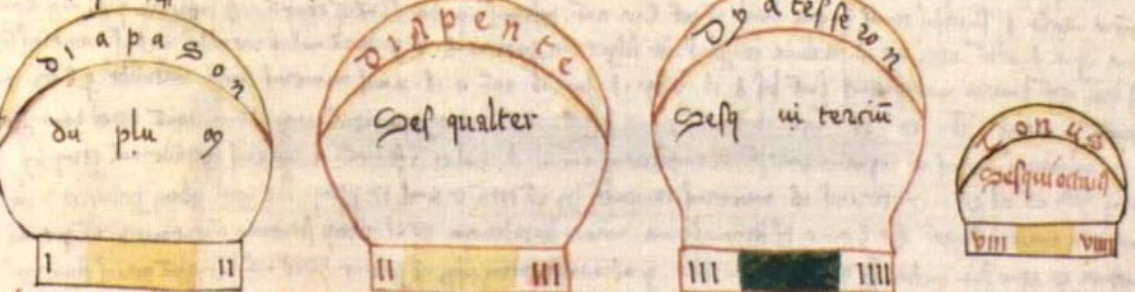 diapason
du plu
I II
Diapente
Sesqualter
II III
Dyatesseron
Sesq ui terciū
III IIII
Tonus
Sesquioctauꝗ
VIII VIIII